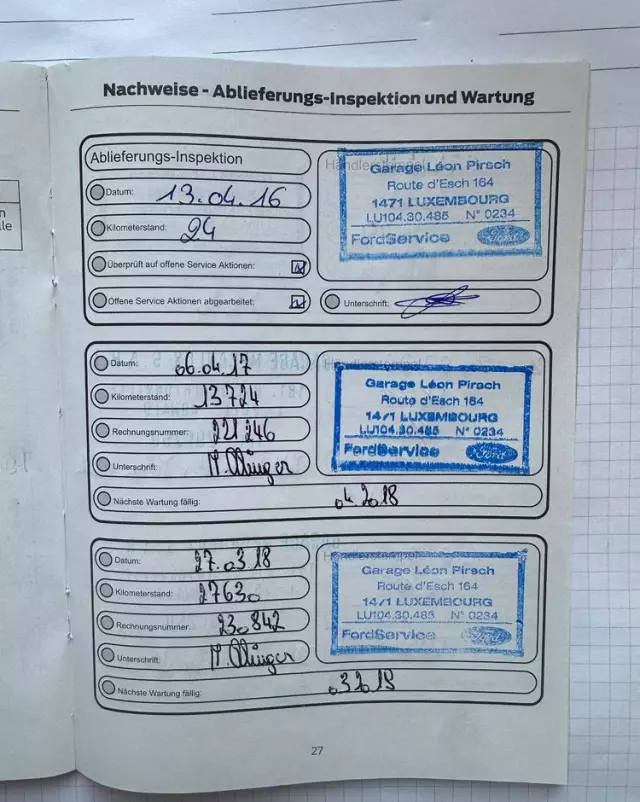 Nachweise - Ablieferungs-Inspektion und Wartung
Ablieferungs-Inspektion
Datum: 13.04.16
Kilometerstand: 24
Überprüft auf offene Service Aktionen:
Offene Service Aktionen abgearbeitet:
Garage Léon Pirsch
Route d'Esch 164
1471 LUXEMBOURG
LU104.30.485 N° 0234
FordService Ford
Unterschrift:
Datum: 06.04.17
Kilometerstand: 13724
Rechnungsnummer: 221246
Unterschrift:
Garage Léon Pirsch
Route d'Esch 164
1471 LUXEMBOURG
LU104.30.485 N° 0234
FordService Ford
Nächste Wartung fällig: 04.2018
Datum: 27.03.18
Kilometerstand: 27630
Rechnungsnummer: 230842
Unterschrift:
Garage Léon Pirsch
Route d'Esch 164
1471 LUXEMBOURG
LU104.30.485 N° 0234
FordService Ford
Nächste Wartung fällig:
27